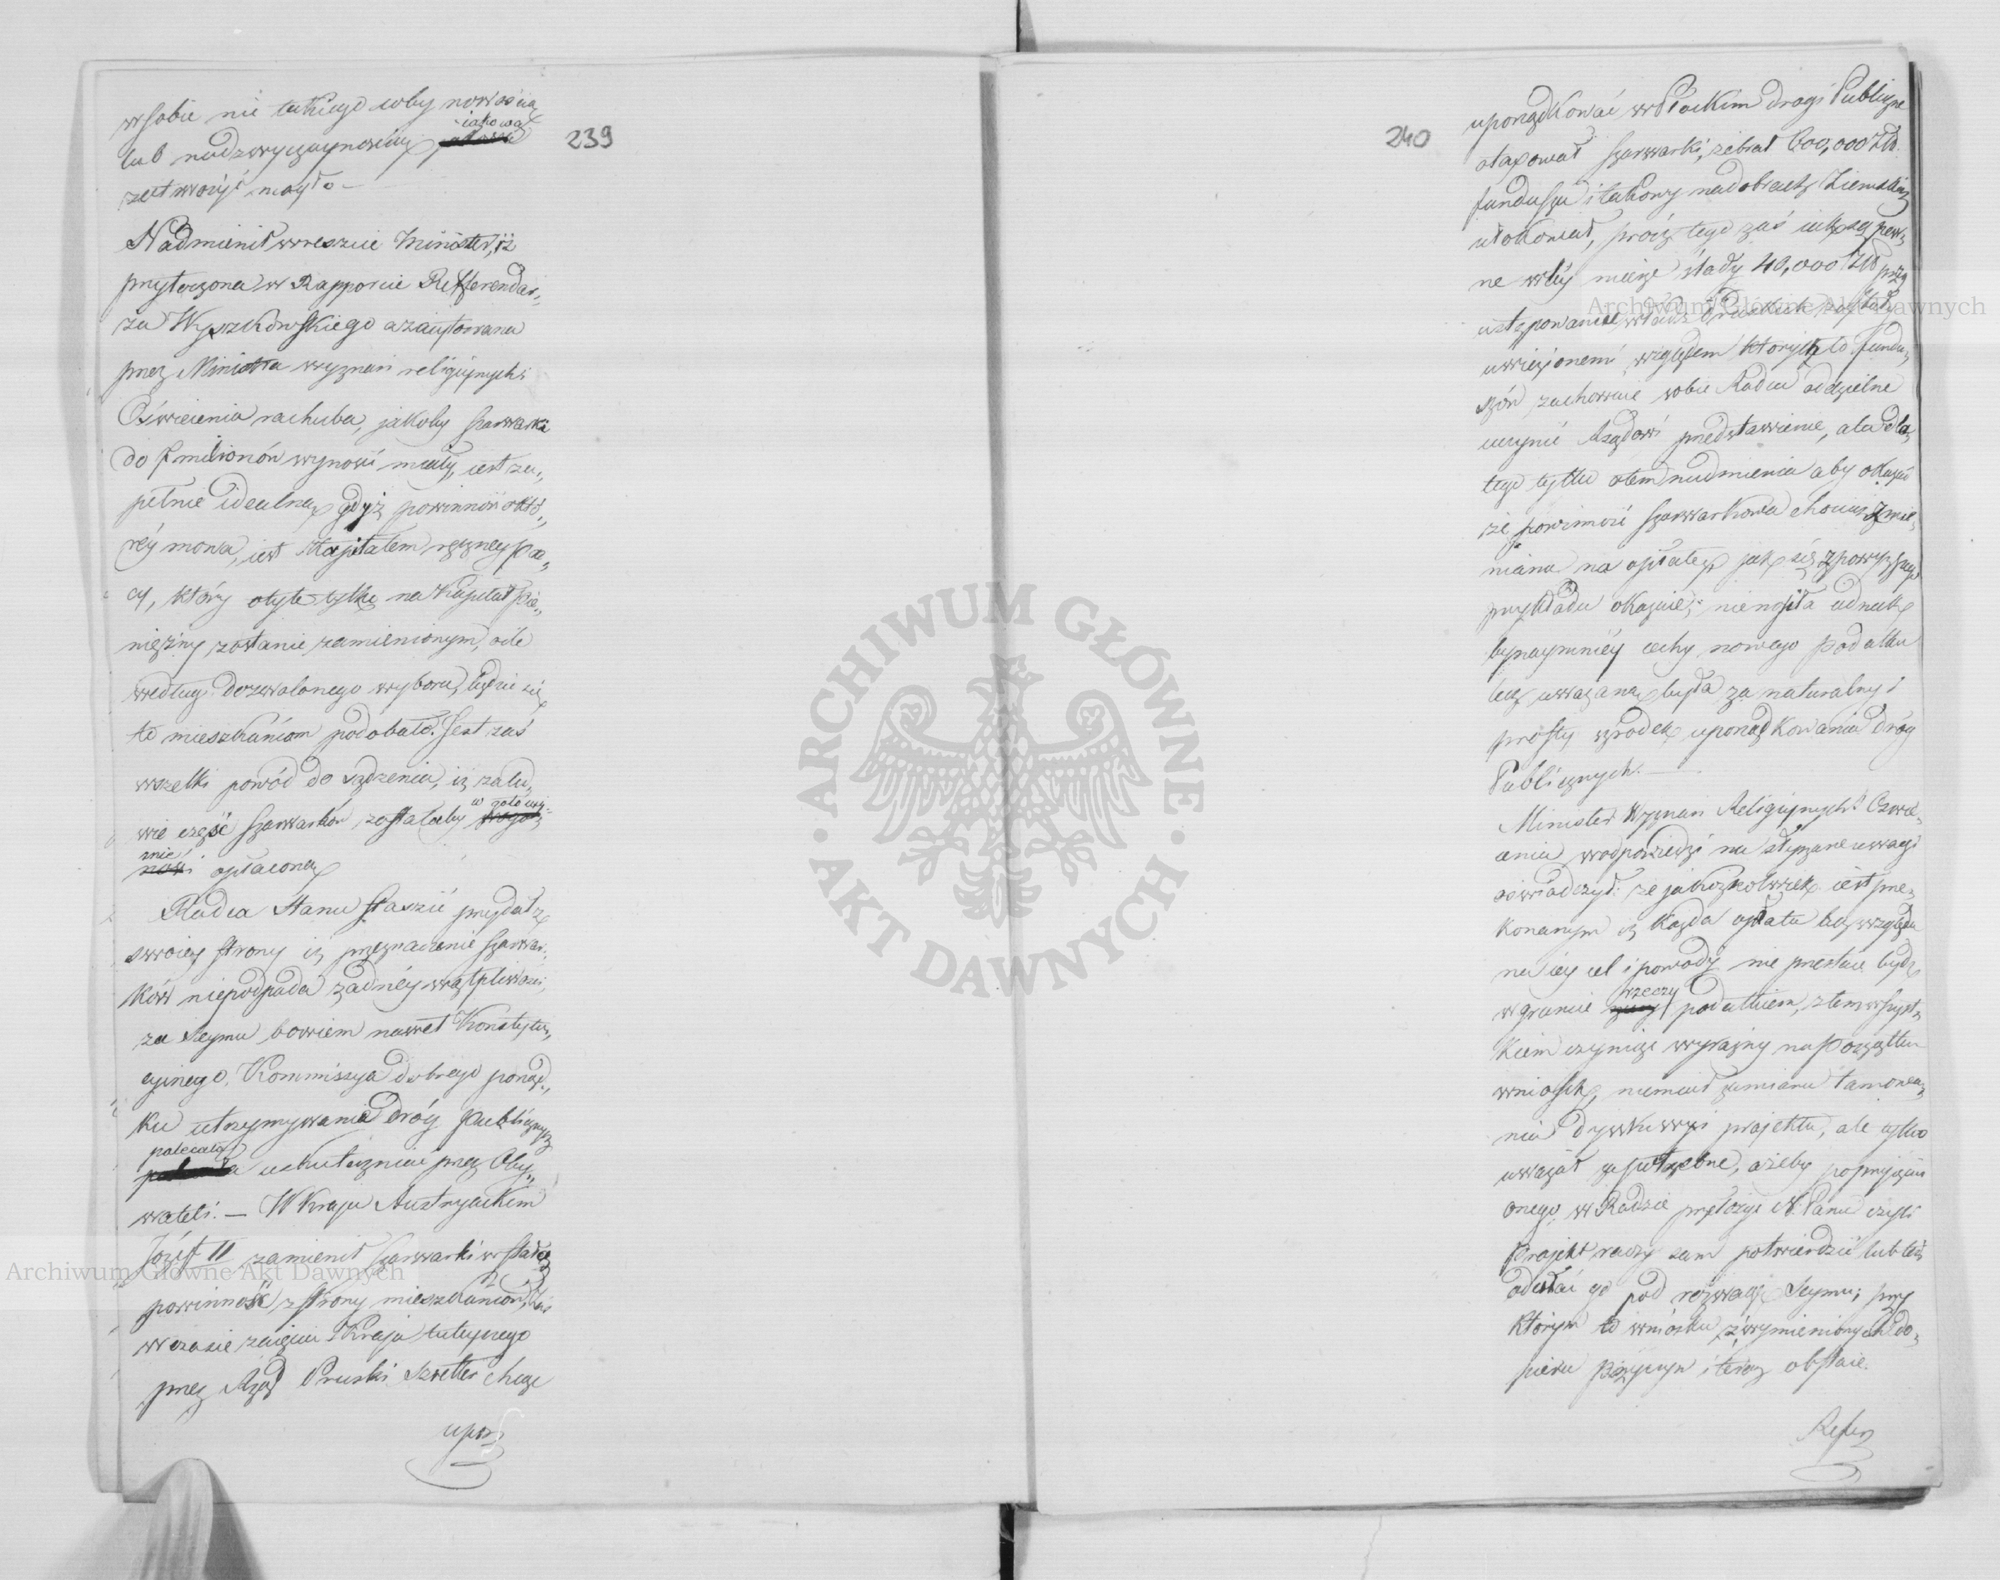 w sobie nic takiego coby nowością
lub nadzwyczaynością iakową
zatrwożyć mogło —
239
Nadmienił wreszcie Minister, iż
przytoczona w Rapporcie Refferendar-
za Wyszkowskiego a zacytowana
przez Ministra wyznań religijnych i
Oświecenia rachuba, jakoby szarwarki
do milionów wynosić miały, iest zu-
pełnie idealną gdyż powinność o któ-
réy mowa, iest kapitałem ręczney pra-
cy, który o tyle tylko na kapitał pie-
niężny zostanie zamienionym, o ile
według dozwolonego wyboru, będzie się
to mieszkańcom podobało. Jest zaś
wszelki powód do sądzenia, iż zale-
wie część szarwarków zostałaby w gotowi-
znie opłaconą
Radca Stanu Staszic przydał z
swoiey strony iż przeznaczenie szarwar-
ków niepodpada żadnéy wątpliwości,
za Seymu bowiem nawet Konstytu-
cyinego, Kommissya dobrego porząd-
ku utrzymywanie dróg publicznych
polecała uskuteczniać przez Oby-
wateli. — W Kraju Austryackim
Józef II zamienił szarwarki w stałą
powinność z strony mieszkańców, zaś
w czasie zaięcia Kraju tuteyszego
przez Rząd Pruski, Szretter chcąc
uporz
240
uporządkować w Płockim drogi Publiczne
otaxował szarwarki, zebrał 600,000 Złt.
funduszu i takowy na dobrach Ziemskich
ulokował, prócz tego zaś są pew-
ne w téy mierze ślady 40,000 Złt przy
ustępowaniu władz Pruskich zostały
uwiezionemi względem których to fundu-
szów zachowuie sobie Radca oddzielne
uczynić Rządowi przedstawienie, a dla
tego tylko o tem nadmienia aby okazać
że powinność szarwarkowa chociaż zmie-
niana na opłatę, jak się z powyższego
przykładu okazuie, nie nosiła iednak
bynaymniéy cechy nowego podatku
lecz uważaną była za naturalny i
prosty środek uporządkowania dróg
Publicznych. —
Minister Wyznań Religijnych i Oświe-
cenia w odpowiedzi na słyszane uwagi
oświadczył: że jakożkolwiek iest prze-
konanym iż każda opłata bez względu
na iey cel i powody nie przestaie bydź
w gruncie rzeczy podatkiem, z tem wszyst-
kiem czyniąc wyrażny na początku
wniosek, niemiał zamiaru tamowa-
nia dyskussyi projektu, ale tylko
uważał za potrzebne, ażeby po przyjęciu
onego w Radzie przełożyć N. Panu czyli
projekt raczy sam potwierdzić lub też
odesłać go pod rozwagę Seymu; przy
którym to wniosku z wymienionych do-
piero przyczyn i teraz obstaie.
Refer
ARCHIWUM GŁÓWNE · AKT DAWNYCH ·
Archiwum Główne Akt Dawnych
Archiwum Główne Akt Dawnych